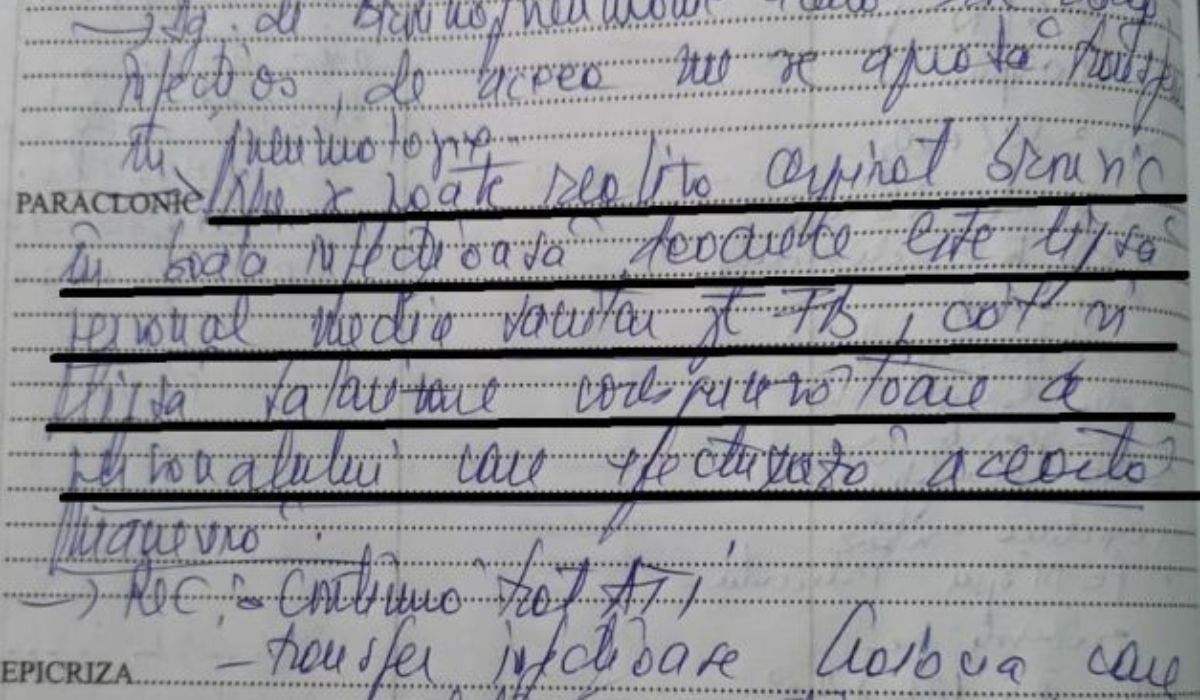 → Dg. de Bronhopneumonie
infectios, de aceea nu se aprobă transfer
în pneumologie.
PARACLINIC Nu se poate realiza aspirat bronșic
în boala infectioasă deoarece este lipsă
personal medico sanitar pt TB, cât și
lipsă salarizare corespunzătoare a
personalului care efectuează această
manevră.
→ REC: - Continuă trat ATI
EPICRIZA - transfer infecțioase Craiova care